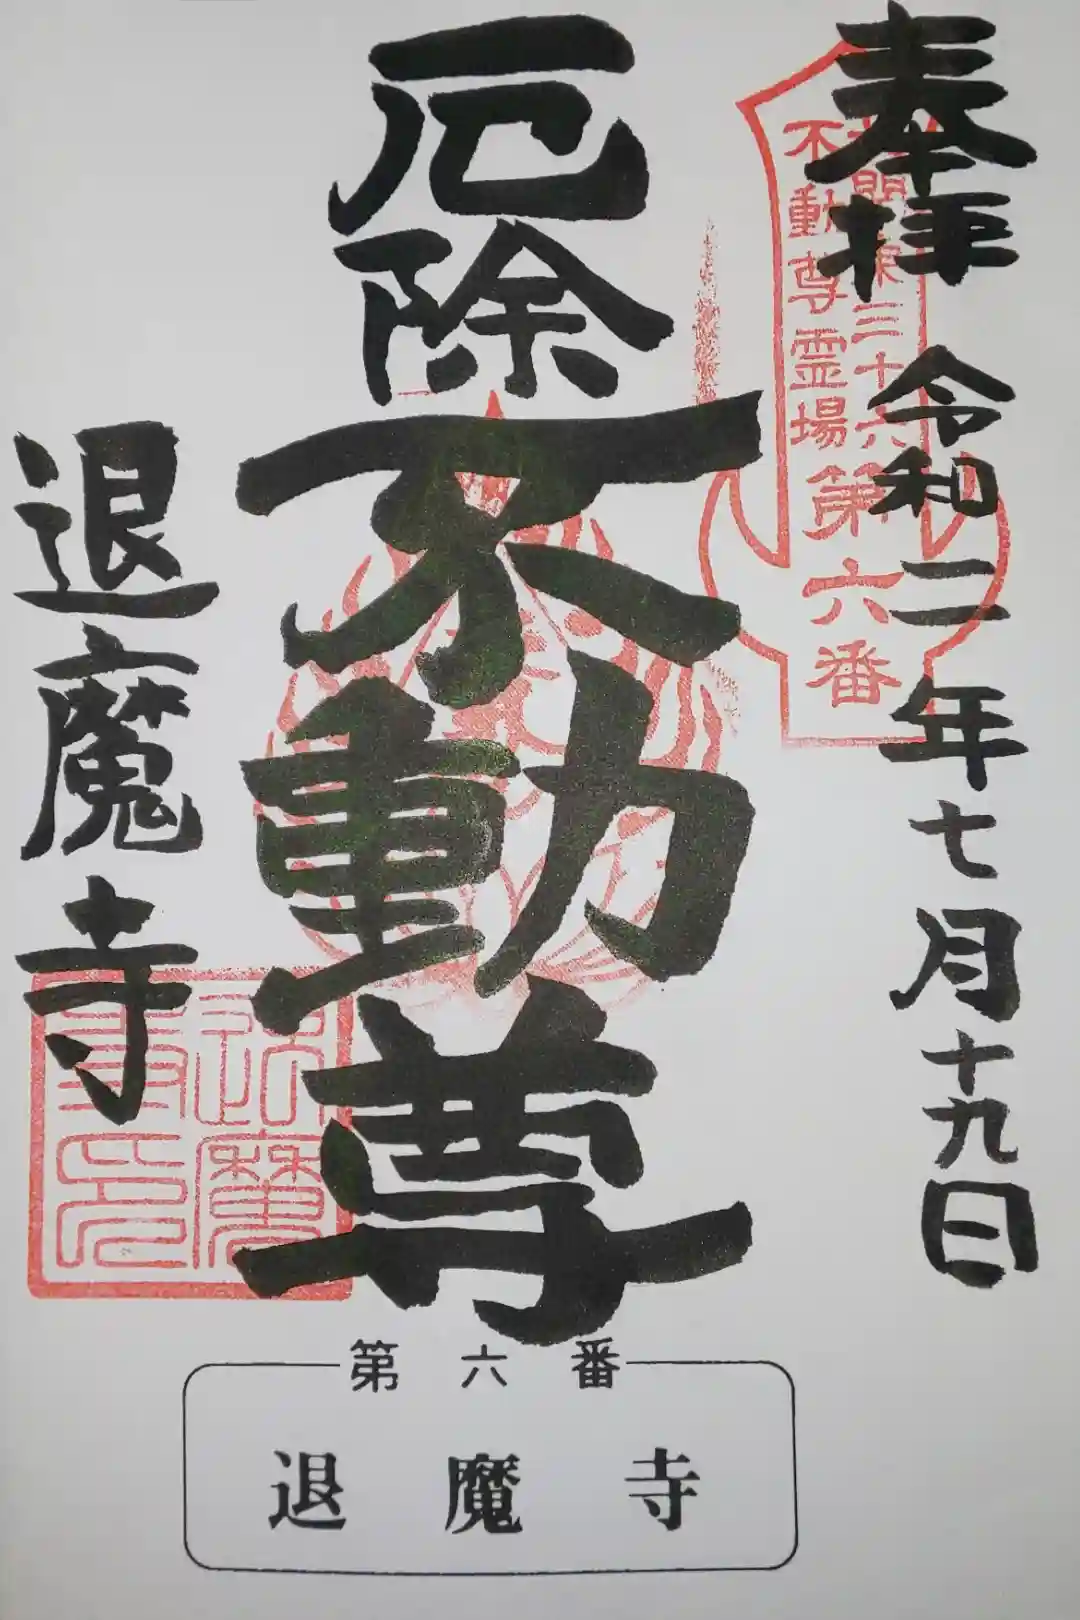 奉拝 令和二年七月十九日
三十六
不動尊霊場
第六番
厄除
不動尊
退魔寺
第六番
退魔寺